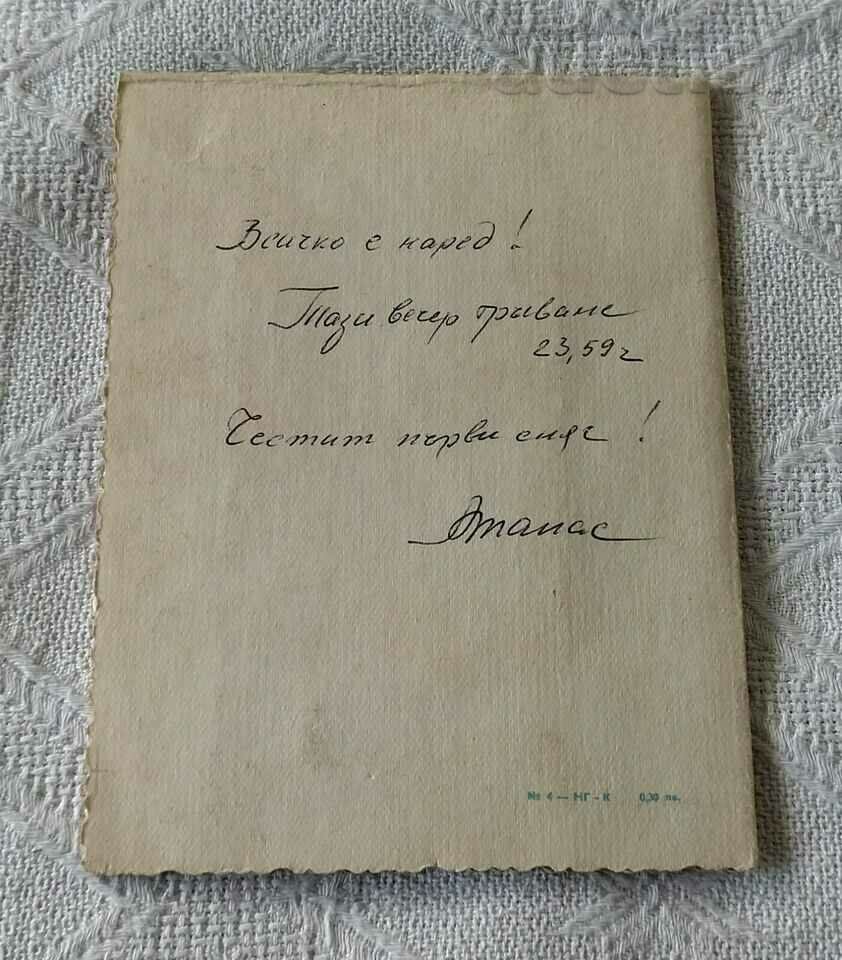 Всичко е наред!
Тази вечер тръгване
23,59ч
Честит първи сняг!
Атанас
№ 4 — НГ - К 0,30 лв.